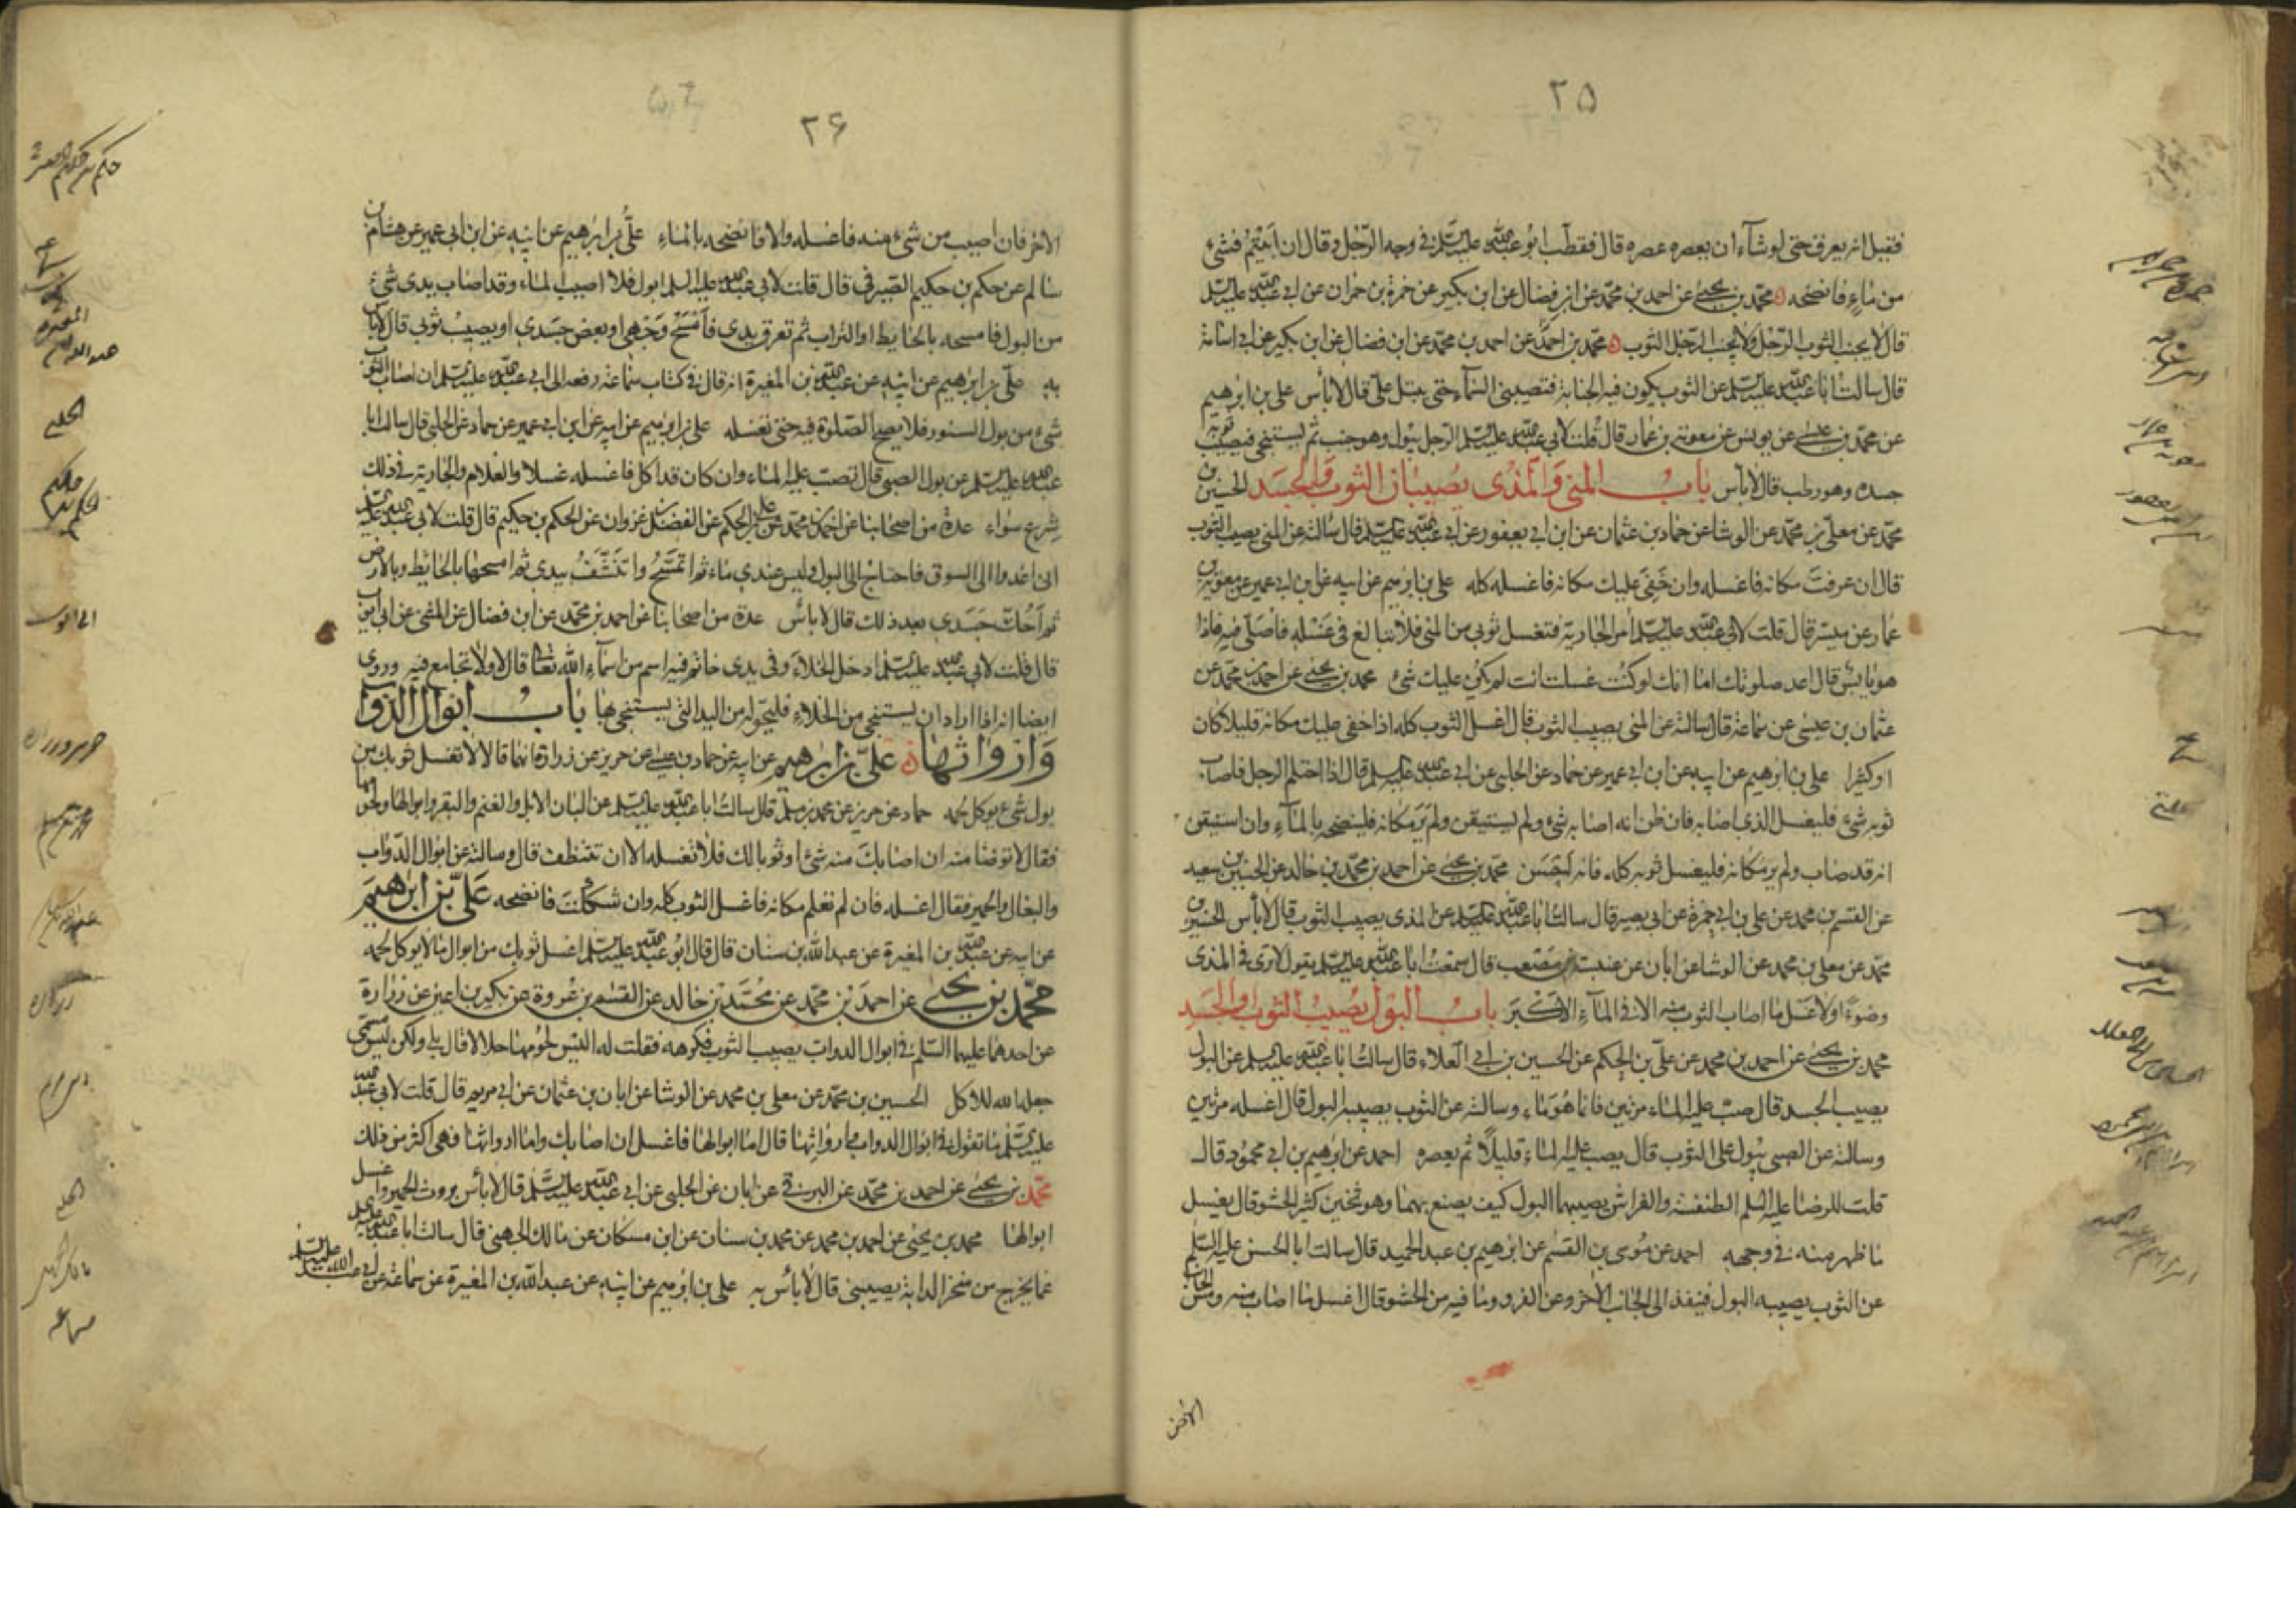 ٢٥
فقيل انه يعرق حتى لو شاء ان يعصره عصره قال فقطب ابو عبد الله عليه السلم في وجه الرجل وقال ان ابيتم فشيء
من ماء فانضحه محمد بن يحيى عن احمد بن محمد عن ابن فضال عن ابن بكير عن حمزة بن حمران عن ابي عبد الله عليه السلم
قال لا يجنب الثوب الرجل ولا يجنب الرجل الثوب محمد بن احمد عن احمد بن محمد عن ابن فضال عن ابن بكير عن ابي اسامة
قال سالت ابا عبد الله عليه السلم عن الثوب يكون فيه الجنابة فتصيبني السماء حتى يبتل علي قال لا باس علي بن ابرهيم
عن محمد بن عيسى عن يونس عن معوية بن عمار قال قلت لابي عبد الله عليه السلم الرجل يبول وهو جنب ثم يستنجي فيصيب ثوبه
جسده وهو رطب قال لا باس باب المني والمذي يصيبان الثوب والجسد الحسين بن
محمد عن معلى بن محمد عن الوشا عن حماد بن عثمان عن ابن ابي يعفور عن ابي عبد الله عليه السلم قال سالته عن المني يصيب الثوب
قال ان عرفت مكانه فاغسله وان خفي عليك مكانه فاغسله كله علي بن ابرهيم عن ابيه عن ابن ابي عمير عن معوية بن
عمار عن ميسر قال قلت لابي عبد الله عليه السلم امر الجارية فتغسل ثوبي من المني فلا تبالغ في غسله فاصلي فيه فاذا
هو يابس قال اعد صلوتك اما انك لو كنت غسلت انت لم يكن عليك شئ محمد بن يحيى عن احمد بن محمد عن
عثمان بن عيسى عن سماعة قال سالته عن المني يصيب الثوب قال اغسل الثوب كله اذا خفي عليك مكانه قليلا كان
او كثيرا علي بن ابرهيم عن ابيه عن ابن ابي عمير عن حماد عن الحلبي عن ابي عبد الله عليه السلم قال اذا احتلم الرجل فاصاب
ثوبه شئ فليغسل الذي اصابه فان ظن انه اصابه شئ ولم يستيقن ولم ير مكانه فلينضحه بالماء وان استيقن
انه قد اصاب ولم ير مكانه فليغسل ثوبه كله فانه احسن محمد بن يحيى عن احمد بن محمد بن خالد عن الحسين بن سعيد
عن القسم بن محمد عن علي بن ابي حمزة عن ابي بصير قال سالت ابا عبد الله عليه السلم عن المذي يصيب الثوب قال لا باس الحسين بن
محمد عن معلى بن محمد عن الوشا عن ابان عن عنبسة بن مصعب قال سمعت ابا عبد الله عليه السلم يقول لا نرى في المذي
وضوءا ولا غسل ما اصاب الثوب منه الا في الماء الاكبر باب البول يصيب الثوب او الجسد
محمد بن يحيى عن احمد بن محمد عن علي بن الحكم عن الحسين بن ابي العلاء قال سالت ابا عبد الله عليه السلم عن البول
يصيب الجسد قال صب عليه الماء مرتين فانما هو ماء وسالته عن الثوب يصيبه البول قال اغسله مرتين
وسالته عن الصبي يبول على الثوب قال يصب عليه الماء قليلا ثم يعصره احمد عن ابرهيم بن ابي محمود قال
قلت للرضا عليه السلم الطنفسة والفراش يصيبهما البول كيف يصنع بهما وهو ثخين كثير الحشو قال يغسل
ما ظهر منه في وجهه احمد عن موسى بن القسم عن ابرهيم بن عبد الحميد قال سالت ابا الحسن عليه السلم
عن الثوب يصيبه البول فينفذ الى الجانب الاخر وعن الفرو وما فيه من الحشو قال اغسل ما اصاب منه ومس الجانب
٢۶
الاخر فان اصبت من شئ منه فاغسله والا فانضحه بالماء علي بن ابرهيم عن ابيه عن ابن ابي عمير عن هشام بن
سالم عن حكم بن حكيم الصيرفي قال قلت لابي عبد الله عليه السلم ابول فلا اصيب الماء وقد اصاب يدي شئ
من البول فامسحه بالحايط او التراب ثم تعرق يدي فامسح وجهي او بعض جسدي او يصيب ثوبي قال لا باس
به علي بن ابرهيم عن ابيه عن عبد الله بن المغيرة انه قال في كتاب سماعة رفعه الى ابي عبد الله عليه السلم ان اصاب الثوب
شئ من بول السنور فلا يصح الصلوة فيه حتى تغسله علي بن ابرهيم عن ابيه عن ابن ابي عمير عن حماد عن الحلبي قال سالت ابا
عبد الله عليه السلم عن بول الصبي قال تصب عليه الماء وان كان قد اكل فاغسله غسلا والغلام والجارية في ذلك
شرع سواء عدة من اصحابنا عن احمد بن محمد عن علي بن الحكم عن الفضل بن غزوان عن الحكم بن حكيم قال قلت لابي عبد الله عليه السلم
اني اغدوا الى السوق فاحتاج الى البول وليس عندي ماء ثم اتمسح واتنشف بيدي ثم امسحها بالحائط وبالارض
ثم احك جسدي بعد ذلك قال لا باس عدة من اصحابنا عن احمد بن محمد عن ابن فضال عن المثنى عن ابي ايوب
قال قلت لابي عبد الله عليه السلم ادخل الخلاء وفي يدي خاتم فيه اسم من اسماء الله تعالى قال لا ولا تجامع فيه وروي
ايضا انه اذا اراد ان يستنجي من الخلاء فليحوله من اليد التي يستنجي بها باب ابوال الدواب
وارواثها علي بن ابرهيم عن ابيه عن حماد بن عيسى عن حريز عن زرارة انهما قالا لا تغسل ثوبك من
بول شئ يوكل لحمه حماد عن حريز عن محمد بن مسلم قال سالت ابا عبد الله عليه السلم عن البان الابل والغنم والبقر وابوالها ولحومها
فقال لا توضا منه ان اصابك منه شئ او ثوبا لك فلا تغسله الا ان تتنظف قال وسالته عن ابوال الدواب
والبغال والحمير فقال اغسله فان لم تعلم مكانه فاغسل الثوب كله وان شككت فانضحه علي بن ابرهيم
عن ابيه عن عبد الله بن المغيرة عن عبد الله بن سنان قال قال ابو عبد الله عليه السلم اغسل ثوبك من ابوال ما لا يوكل لحمه
محمد بن يحيى عن احمد بن محمد عن محمد بن خالد عن القسم بن عروة عن بكير بن اعين عن زرارة
عن احدهما عليهما السلم في ابوال الدواب يصيب الثوب فكرهه فقلت له اليس لحومها حلالا قال بلى ولكن ليس مما
جعله الله للاكل الحسين بن محمد عن معلى بن محمد عن الوشا عن ابان بن عثمان عن ابي مريم قال قلت لابي عبد الله
عليه السلم ما تقول في ابوال الدواب وارواثها قال اما ابوالها فاغسل ان اصابك واما ارواثها فهي اكثر من ذلك
محمد بن يحيى عن احمد بن محمد عن البرقي عن ابان عن الحلبي عن ابي عبد الله عليه السلم قال لا باس بروث الحمير واغسل
ابوالها محمد بن يحيى عن احمد بن محمد عن محمد بن سنان عن ابن مسكان عن مالك الجهني قال سالت ابا عبد الله عليه السلم
عما يخرج من منخر الدابة يصيبني قال لا باس به علي بن ابرهيم عن ابيه عن عبد الله بن المغيرة عن سماعة عن ابي عبد الله عليه السلم